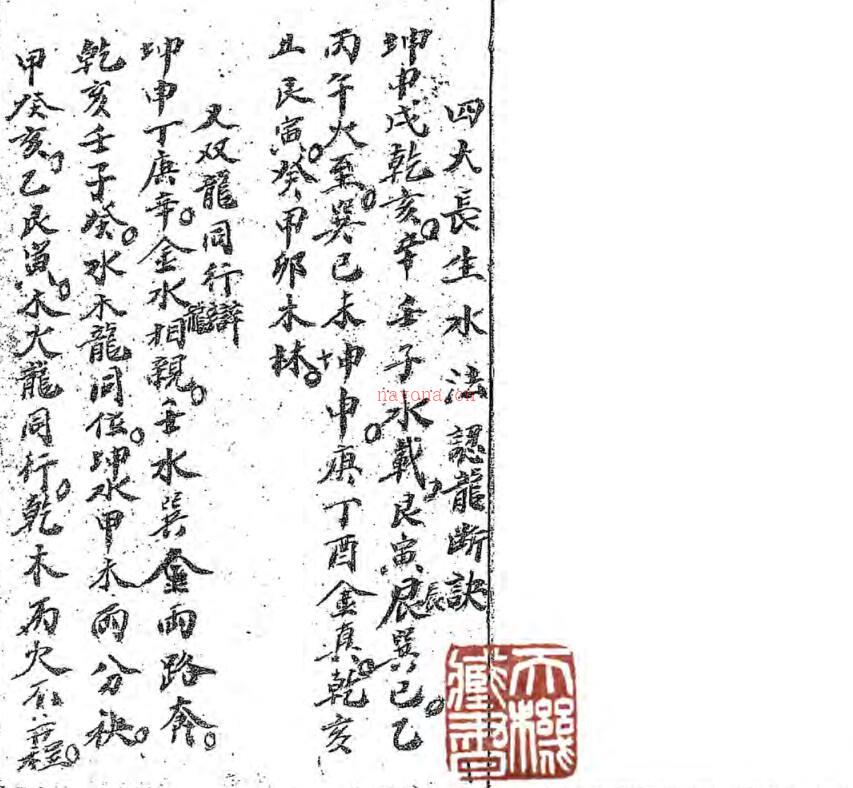 四大長生水法 認龍断訣
坤申戌乾亥。辛壬子水載。艮寅辰巽巳。乙
丙午火至。巽巳未坤申。庚丁酉金真。乾亥
丑艮寅。癸甲卯木林。
又双龍同行辯龍
坤申丁庚辛。金水相親。壬水巽金両路奔。
乾亥壬子癸。水木龍同位。坤水甲木両分袂。
甲癸亥。乙艮寅。木火龍同行。乾木丙火
nayona.cn
天機藏書